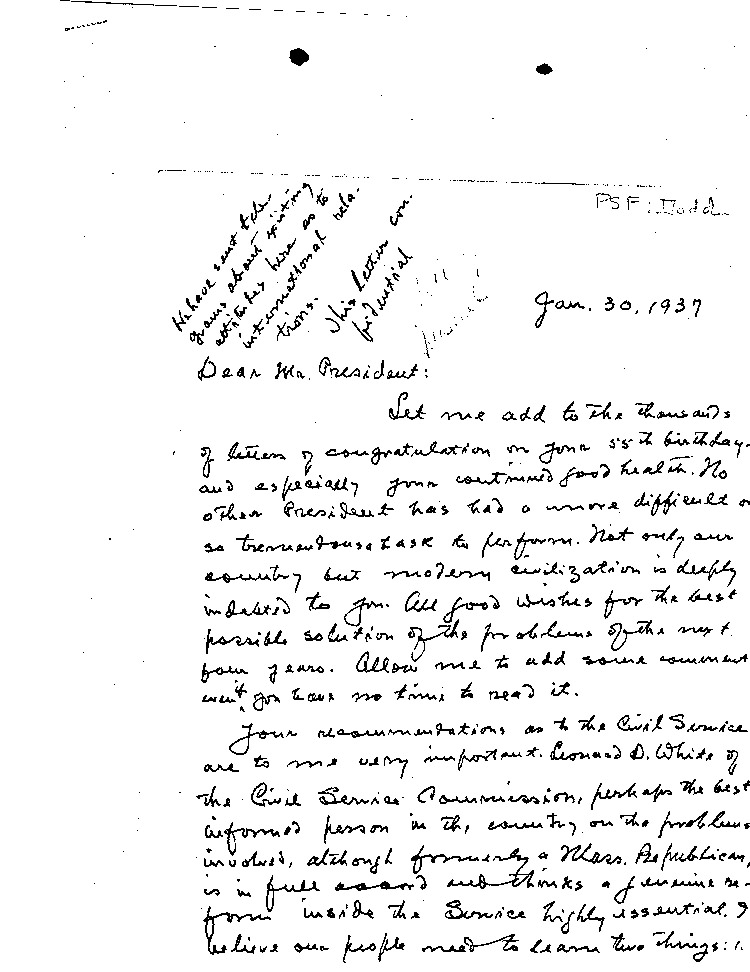 PSF: Dodd
We have sent tele-
grams about existing
attitudes here as to
international rela-
tions.
This letter con-
fidential
Jan. 30, 1937
Dear Mr. President:
Let me add to the thousands
of letters of congratulation on your 55th birthday
and especially your continued good health. No
other President has had a more difficult or
so tremendous a task to perform. Not only our
country but modern civilization is deeply
indebted to you. All good wishes for the best
possible solution of the problems of the next
four years. Allow me to add some comment
you have no time to read it.
Your recommendations as to the Civil Service
are to me very important. Leonard D. White of
the Civil Service Commission, perhaps the best
informed person in the country on the problems
involved, although formerly a Mass. Republican,
is in full accord and thinks a genuine re-
form inside the Service highly essential. I
believe our people need to learn two things: 1.